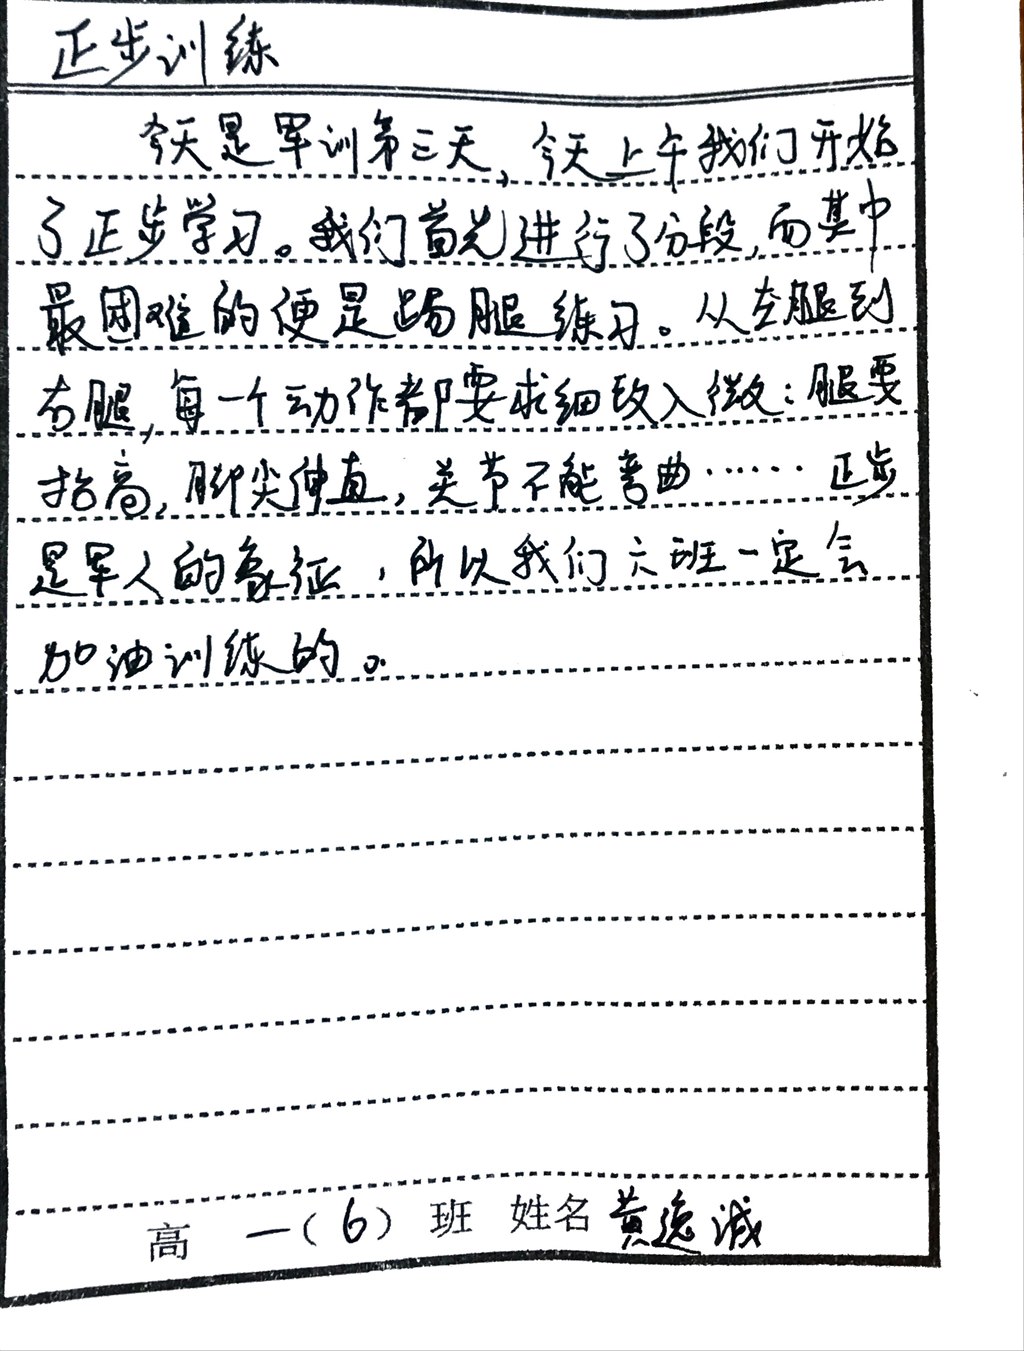 正步训练
今天是军训第三天，今天上午我们开始
了正步学习。我们首先进行了分段，而其中
最困难的便是踢腿练习。从左腿到
右腿，每一个动作都要求细致入微：腿要
抬高，脚尖伸直，关节不能弯曲……正步
是军人的象征，所以我们六班一定会
加油训练的。
高 一（6）班 姓名 黄逸诚